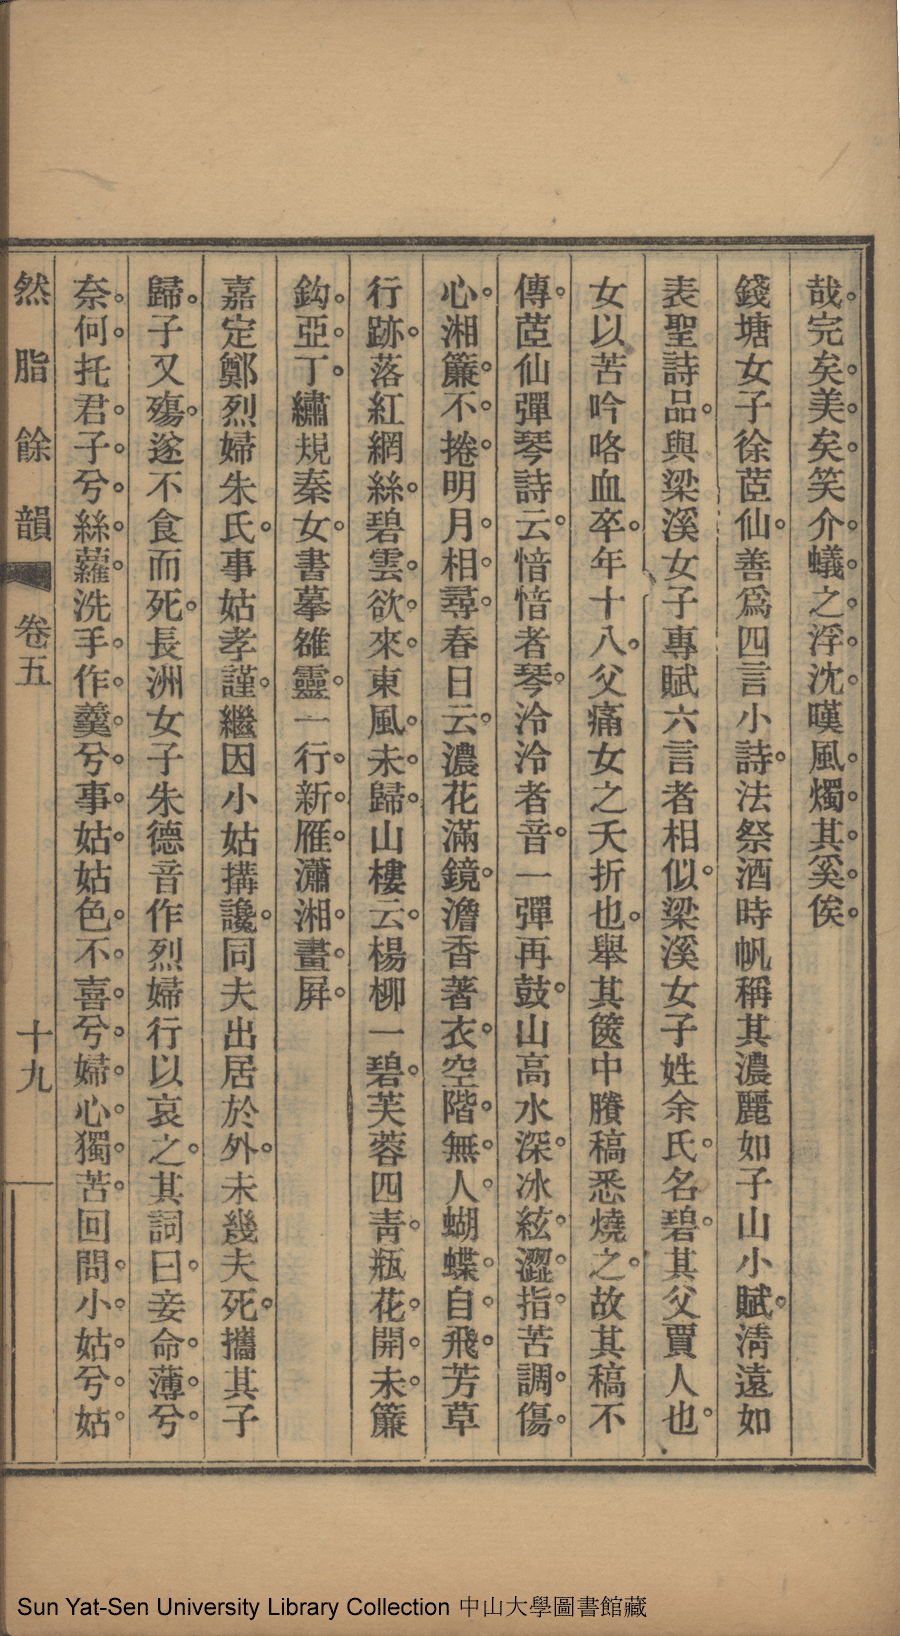 哉完矣美矣笑介蟻之浮沈嘆風燭其奚俟
錢塘女子徐茝仙善爲四言小詩法祭酒時帆稱其濃麗如子山小賦淸遠如
表聖詩品與梁溪女子專賦六言者相似梁溪女子姓余氏名碧其父賈人也
女以苦吟咯血卒年十八父痛女之夭折也舉其篋中賸稿悉燒之故其稿不
傳茝仙彈琴詩云愔愔者琴泠泠者音一彈再鼓山高水深冰絃澀指苦調傷
心湘簾不捲明月相尋春日云濃花滿鏡澹香著衣空階無人蝴蝶自飛芳草
行跡落紅網絲碧雲欲來東風未歸山樓云楊柳一碧芙蓉四靑瓶花開未簾
鈎亞丁繡規秦女書摹雒靈一行新雁瀟湘畫屛
嘉定鄭烈婦朱氏事姑孝謹繼因小姑搆讒同夫出居於外未幾夫死攜其子
歸子又殤遂不食而死長洲女子朱德音作烈婦行以哀之其詞曰妾命薄兮
奈何托君子兮絲蘿洗手作羹兮事姑姑色不喜兮婦心獨苦回問小姑兮姑
然脂餘韻 卷五 十九
Sun Yat-Sen University Library Collection 中山大學圖書館藏